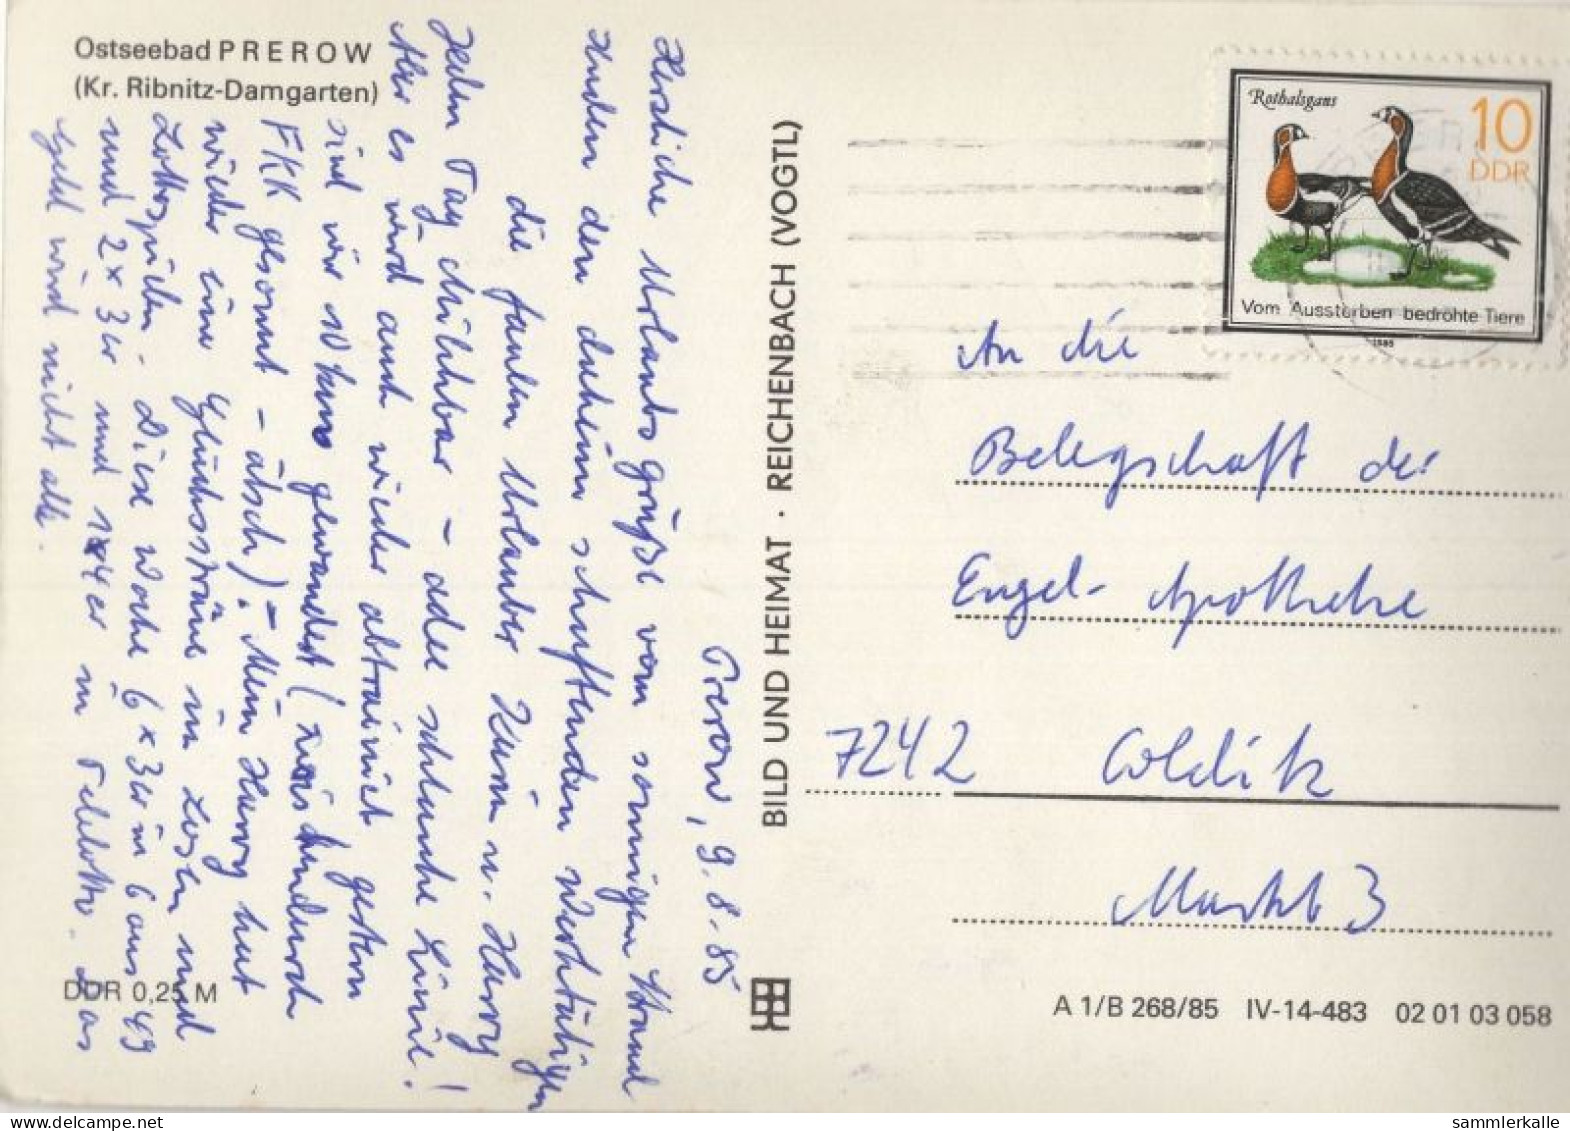 Ostseebad PREROW
(Kr. Ribnitz-Damgarten)
Prerow, 9.8.85
Herzliche Urlaubsgrüße vom sonnigen Strand
senden den daheim schuftenden Werktätigen
die faulen Urlauber Heim u. Harry
Jeden Tag Milchbar – adee schlanke Linie!
Aber es wird auch wieder abtrainiert gestern
sind wir 10 km gewandert (
FKK gesonnt – äbsch). – Mein Harry hat
wieder eine Glückssträhne im Losen und
Lottospielen. Diese Woche 6 x 3er in 6 aus 49
und 2 x 3er und 1x4er in Telelotto. Das
Geld wird nicht alle.
DDR 0,25 M
BILD UND HEIMAT · REICHENBACH (VOGTL)
Rothalsgans
10
DDR
Vom Aussterben bedrohte Tiere
1985
An die
Belegschaft der
Engel-Apotheke
7242 Colditz
Markt 3
A 1/B 268/85 IV-14-483 02 01 03 058
sammlerkalle